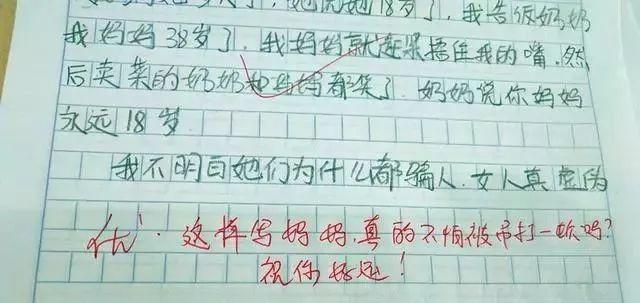 她说她18岁了，我告诉奶奶
我妈妈38岁了，我妈妈就赶紧捂住我的嘴，然
后卖菜的奶奶和妈妈都笑了，奶奶说你妈妈
永远18岁
我不明白她们为什么都骗人，女人真虚伪
优⁻．这样写妈妈，真的不怕被吊打一顿吗？
祝你好运！